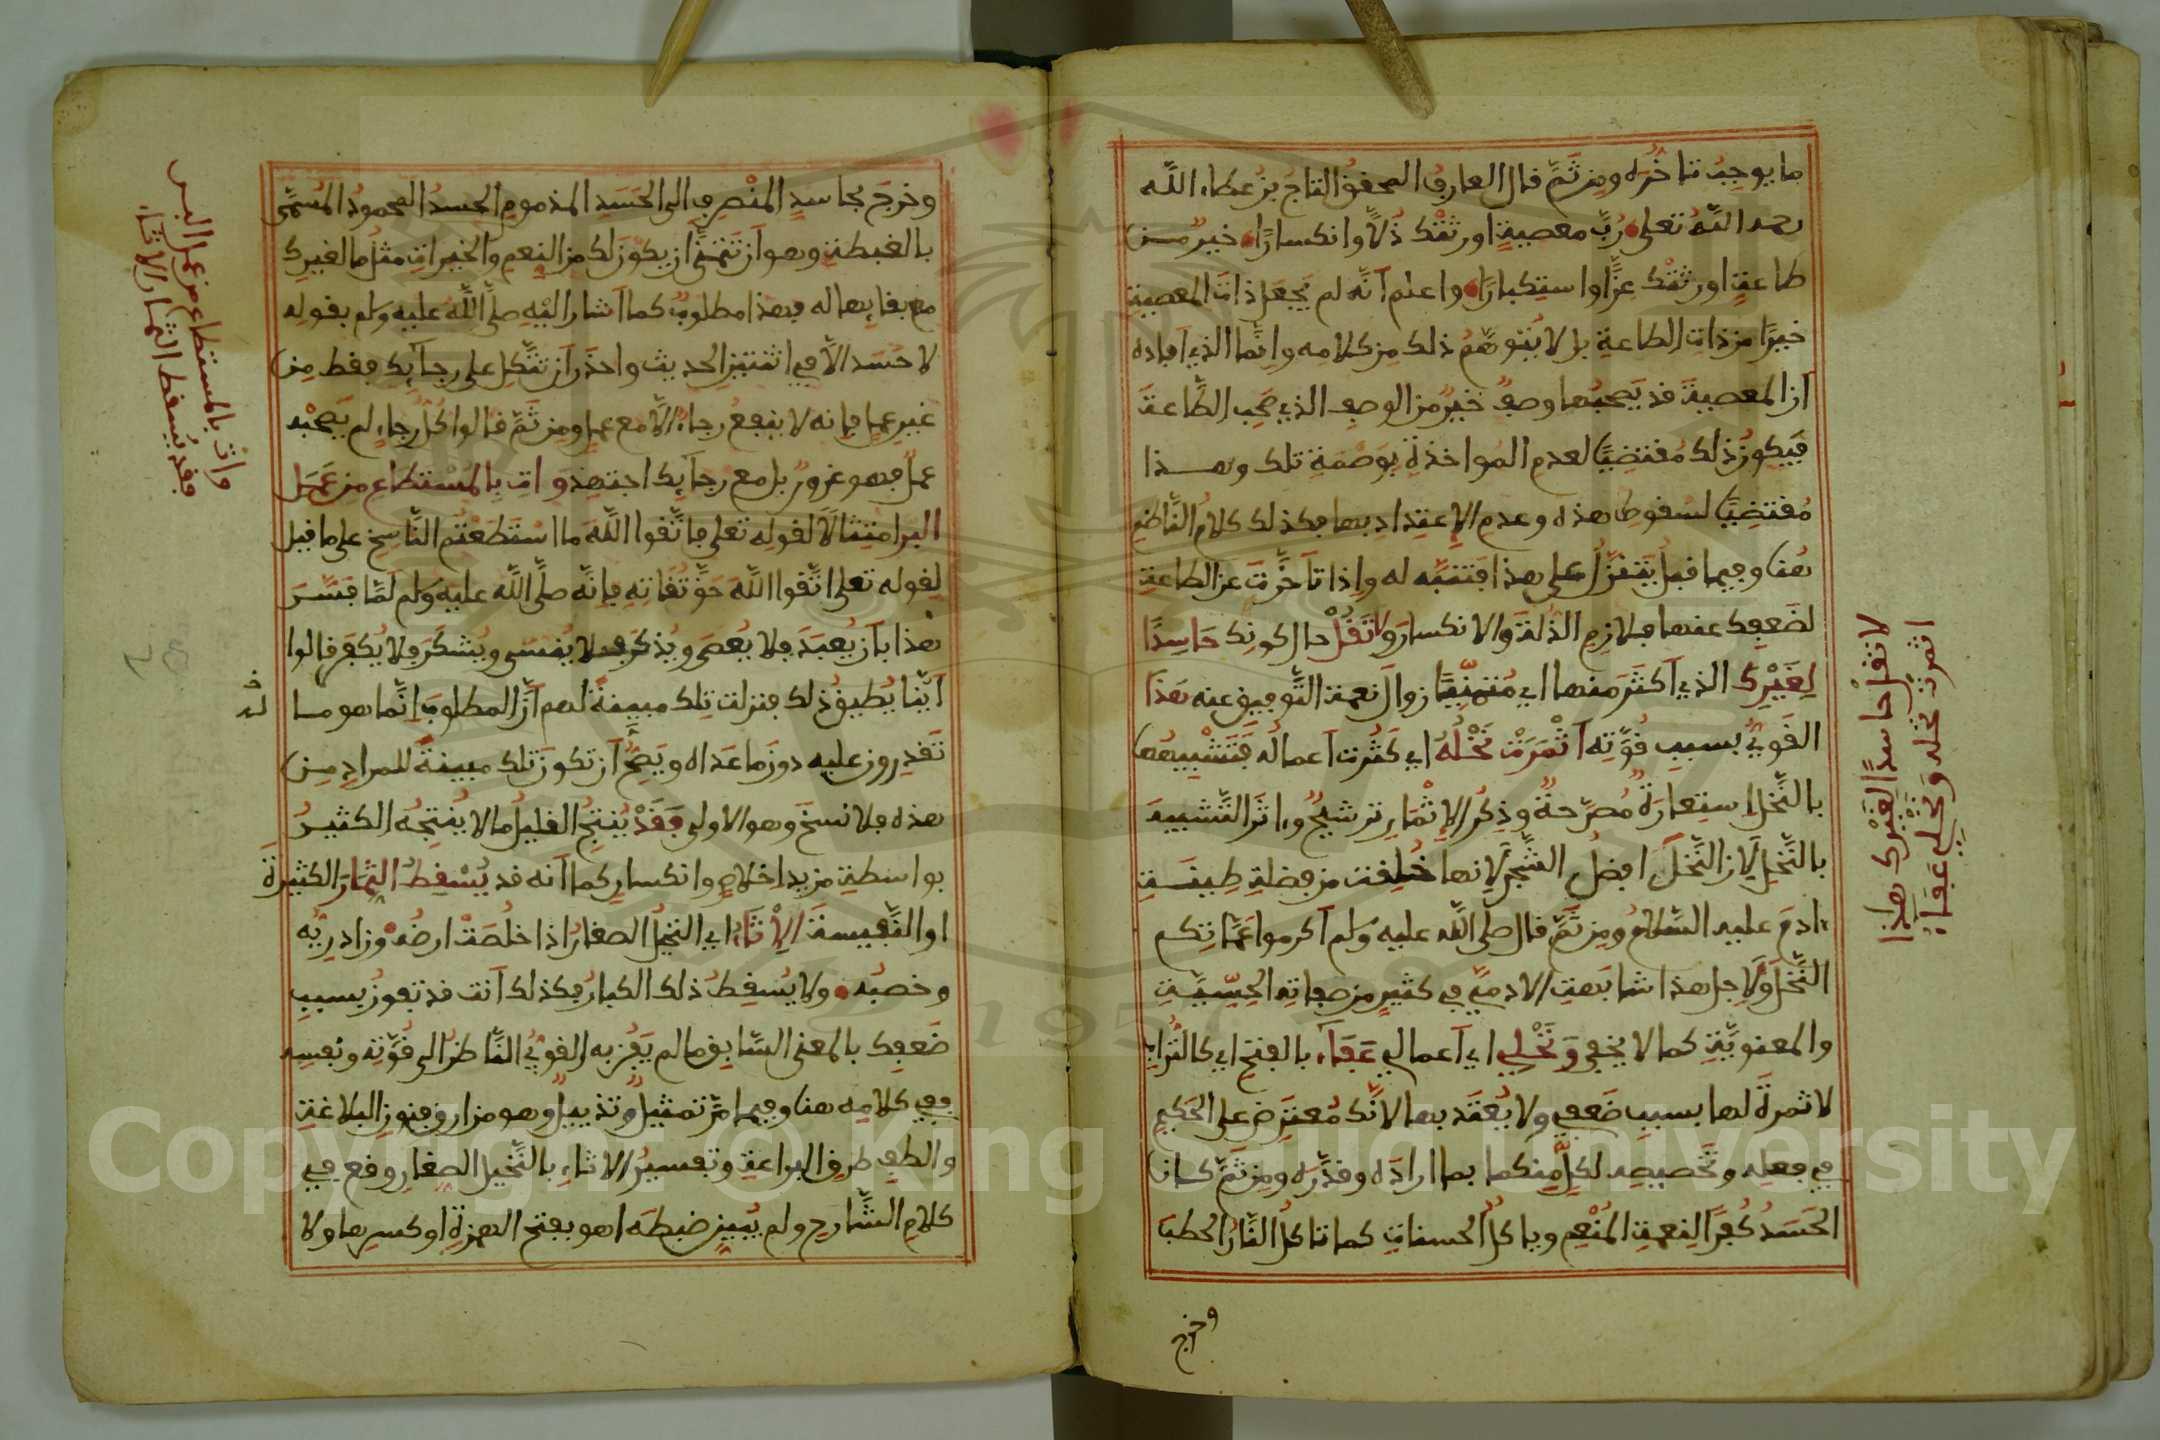 ما يوجب تاخره ومن ثم قال العارف المحقق التاج بن عطاء الله
رحمه الله تعلى رب معصية اورثتك ذلا وانكسارا خير من
طاعة اورثتك عزا واستكبارا واعلم انه لم يجعل ذات المعصية
خيرا من ذات الطاعة بل لا يتوهم ذلك من كلامه وانما الذي افاده
ان المعصية قد يصحبها وصف خير من الوصف الذي صحب الطاعة
فيكون ذلك مقتضيا لعدم المواخذة بوصمة تلك وهذا
مقتضيا لسقوط هذه وعدم الاعتداد بها فكذلك كلام الناظم
هنا وفيما قبل يتنزل على هذا فتنبه له واذا تاخرت عن الطاعة
لضعفك عنها فلازم الذلة والانكسار ولا تقل حال كونك حاسدا
لغيرك الذي اكثر منها اي متمنيا زوال نعمة التوفيق عنه هذا
القوي بسبب قوته اثمرت نخله اي كثرت اعماله فتشبيهها
بالنخل استعارة مصرحة وذكر الاثمار ترشيح واثر التشبيه
بالنخل لان النخل افضل الشجر لانها خلقت من فضلة طينة
ادم عليه السلام ومن ثم قال صلى الله عليه وسلم اكرموا عماتكم
النخل ولاجل هذا شابهت الادمي في كثير من صفاته الحسية
والمعنوية كما لا يخفى ونخلي اي اعمالي عفاء بالفتح اي كالتراب
لا ثمرة لها بسبب ضعفي ولا يعتد بها لانك معترض على الحكيم
في فعله وتخصيصه لكل منكما بما اراده وقدره ومن ثم كان
الحسد كفرا لنعمة المنعم وياكل الحسنات كما تاكل النار الحطب
وخرج
لا تقل حاسدا لغيرك هذا
اثمرت نخله ونخلي عفاء
وخرج بحاسد المنصرف الى الحسد المذموم الحسد المحمود المسمى
بالغبطة وهو ان تتمنى ان يكون لك من النعم والخيرات مثل ما لغيرك
مع بقائها له فهذا مطلوب كما اشار اليه صلى الله عليه وسلم بقوله
لا حسد الا في اثنتين الحديث واحذر ان تتكل على رجآئك فقط من
غير عمل فانه لا ينفع رجاء الا مع عمل ومن ثم قالوا كل رجاء لم يصحبه
عمل فهو غرور بل مع رجآئك اجتهد وات بالمستطاع من عمل
البر امتثالا لقوله تعلى فاتقوا الله ما استطعتم الناسخ على ما قيل
لقوله تعلى اتقوا الله حق تقاته فانه صلى الله عليه وسلم لما فسر
هذا بان يعبد فلا يعصى ويذكر فلا ينسى ويشكر فلا يكفر قالوا
اينا يطيق ذلك فنزلت تلك مبينة لهم ان المطلوب انما هو ما
تقدرون عليه دون ما عداه ويصح ان تكون تلك مبينة للمراد من
هذه فلا نسخ وهو الاولى فقد ينتج القليل ما لا ينتجه الكثير
بواسطة مزيد اخلاص وانكسار كما انه قد يسقط الثمار الكثيرة
او النفيسة الاثاء اي النخيل الصغار اذا خلصت ارضه وزاد ريه
وخصبه ولا يسقط ذلك الكبار فكذلك انت قد تفوز بسبب
ضعفك بالمعنى السابق ما لم يفز به القوي الناظر الى قوته ونفسه
ففي كلامه هنا وفيما مر تمثيل وتذييل وهو من ارق فنون البلاغة
والطف طرق البراعة وتفسير الاثاء بالنخيل الصغار وقع في
كلام الشارح ولم يبين ضبطه اهو بفتح الهمزة او كسرها ولا
وات بالمستطاع من عمل البر
فقد يسقط الثمار الاثاء